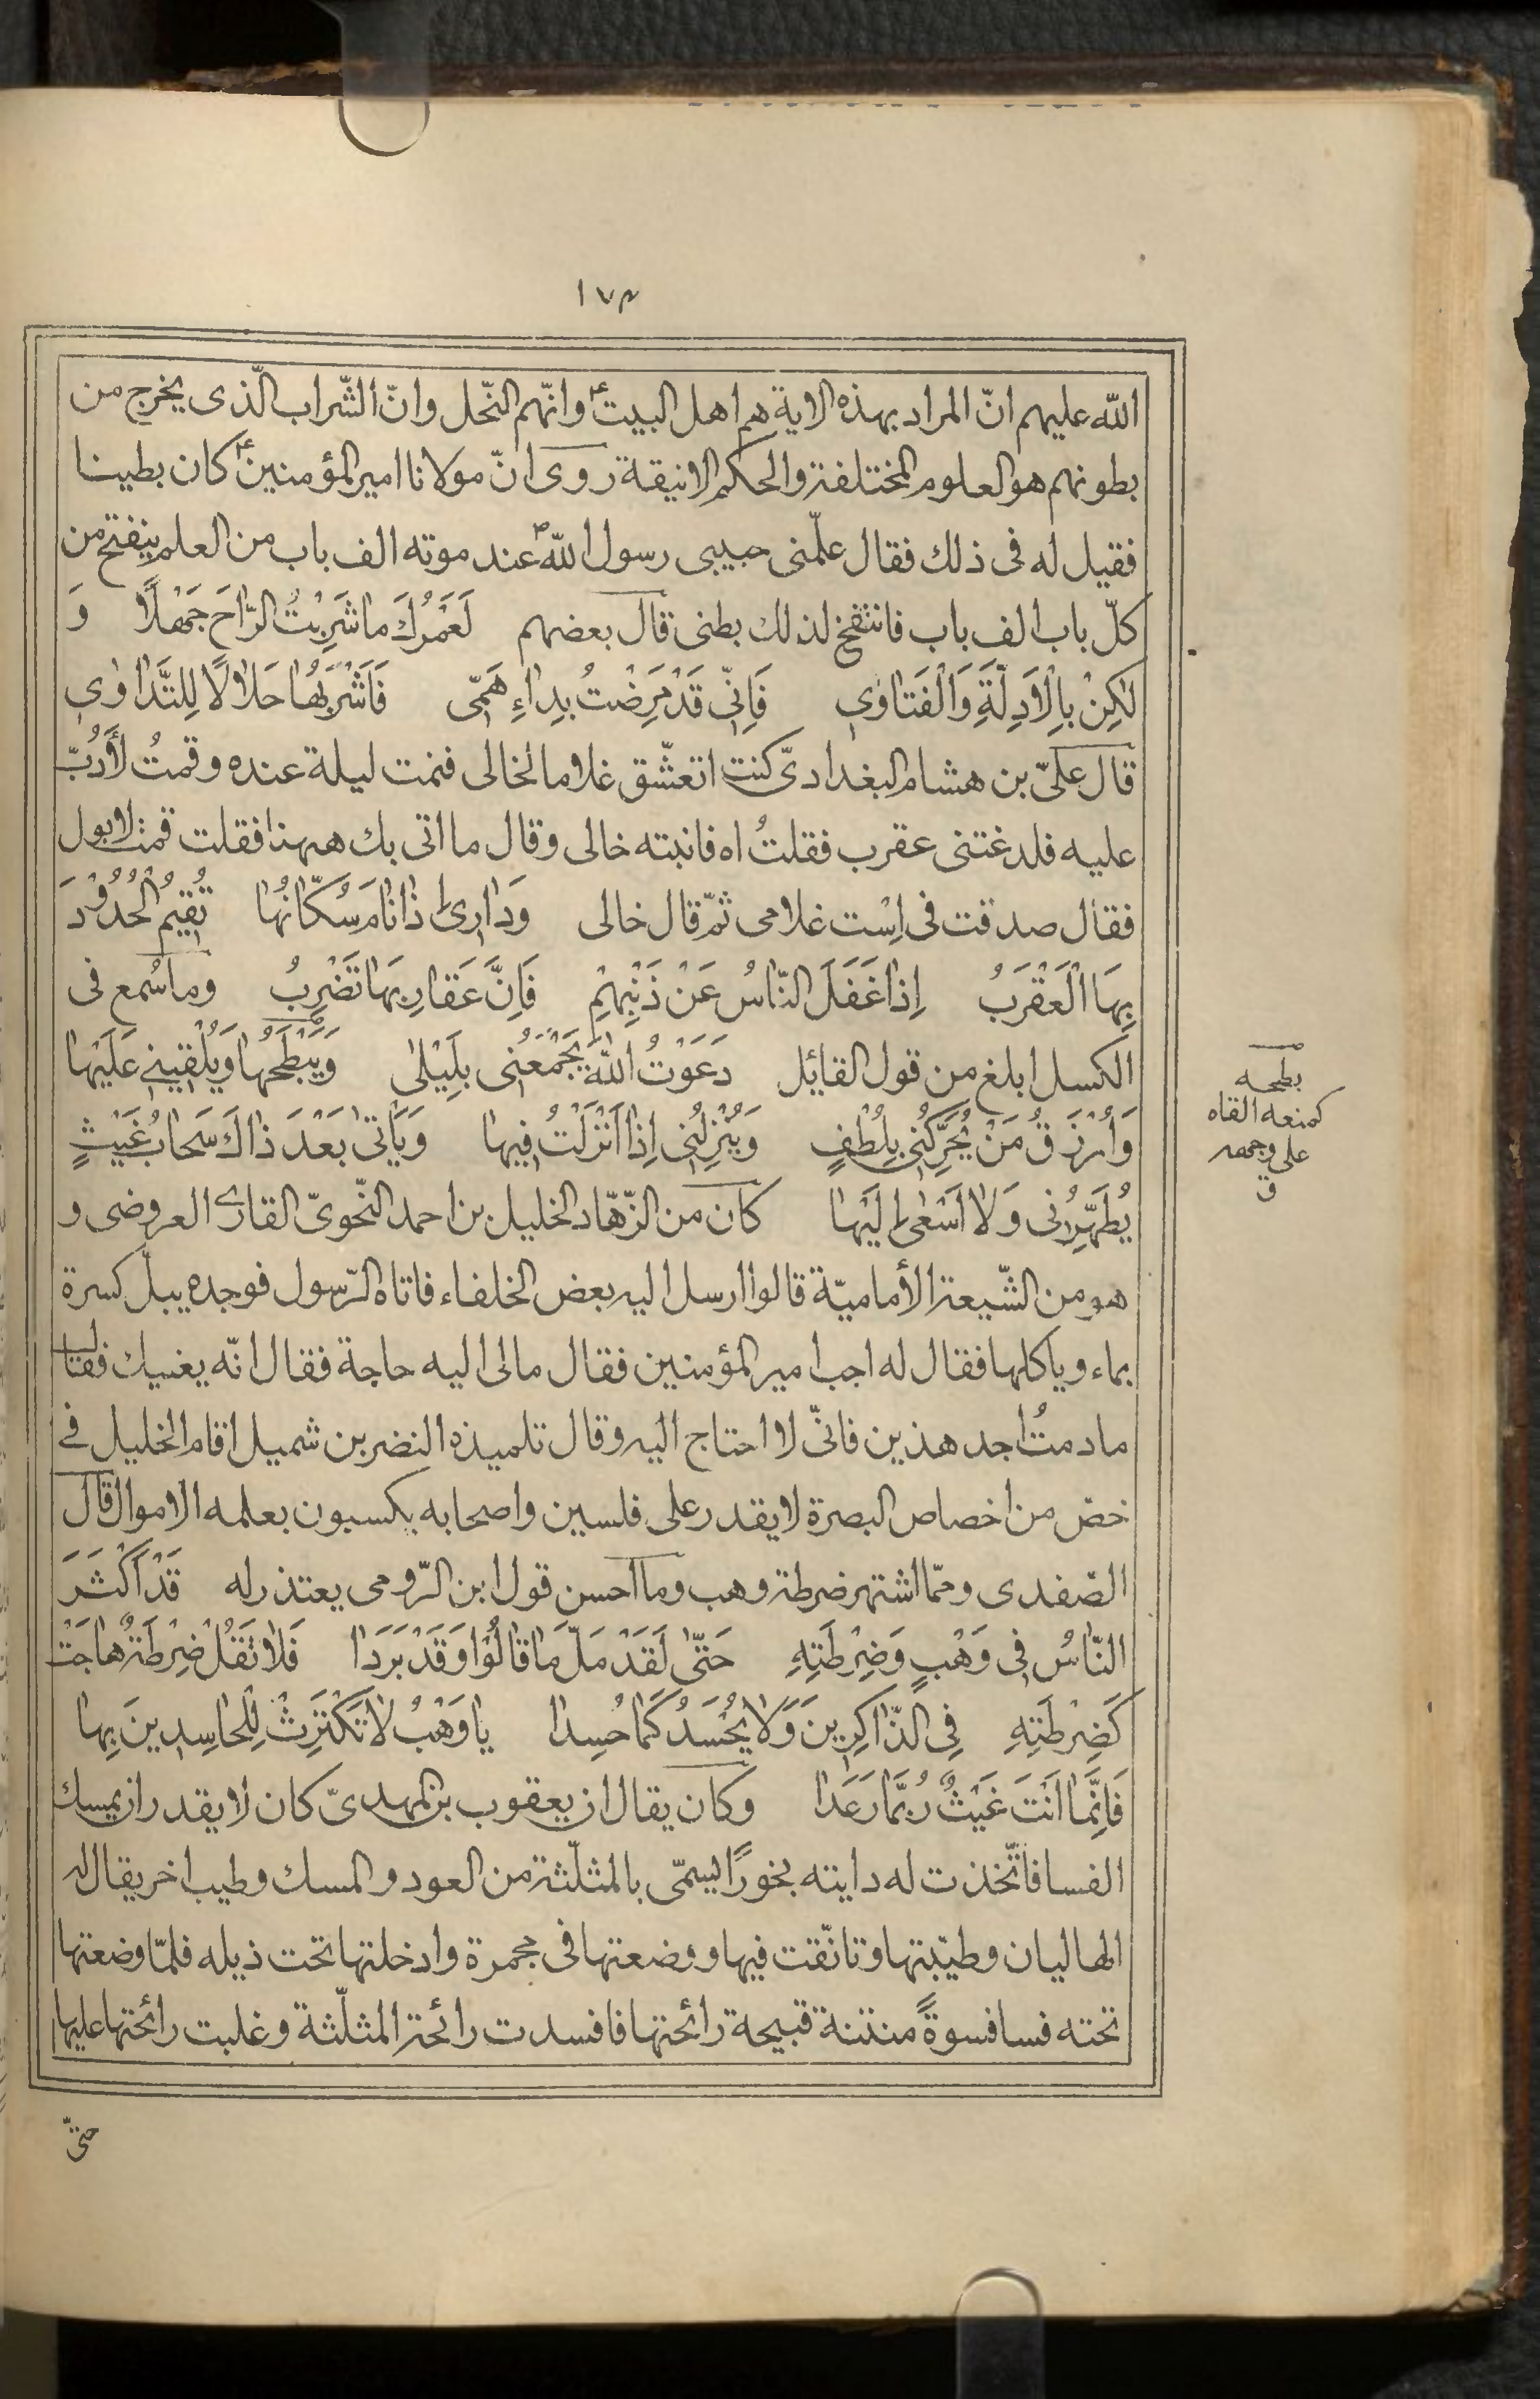 ١٧٣
الله عليهم انّ المراد بهذه الاية هم اهل البيتؑ وانّهم النّحل وانّ الشّراب الّذى يخرج من
بطونهم هو العلوم المختلفة والحكم الانيقة روى انّ مولانا امير المؤمنينؑ كان بطينا
فقيل له فى ذلك فقال علّمنى حبيبى رسول اللهؐ عند موته الف باب من العلم ينفتح من
كلّ باب الف باب فانتفخ لذلك بطنى قال بعضهم لَعَمْرُكَ ما شَرِبْتُ الرّاحَ جَهْلاً وَ
لٰكِنْ بِالْاَدِلَّةِ وَالْفَتاوٰى فَاِنّى قَدْ مَرِضْتُ بِداءِ هَمّى فَاَشْرَبُها حَلالًا لِلتَّداوٰى
قال علىّ بن هشام البغدادىّ كنت اتعشّق غلاما لخالى فنمت ليلة عنده وقمتُ لأَدُبّ
عليه فلدغتنى عقرب فقلتُ اه فانبته خالى وقال ما اتى بك ههنا فقلت قمت لابول
فقال صدقت فى اِسْت غلامى ثمّ قال خالى وَدارى اِذا نامَ سُكّانُها تُقيمُ الْحُدُودَ
بِهَا الْعَقْرَبُ اِذا غَفَلَ النّاسُ عَنْ ذَنْبِهِمْ فَاِنَّ عَقارِبَها تَضْرِبُ وما سُمع فى
الكسل ابلغ من قول القايل دَعَوْتُ اللهَ يَجْمَعُنى بِلَيْلى وَيَبْطَحُها وَيُلْقينى عَلَيْها
وَاُرْزَقُ مَنْ يُحَرِّكُنى بِلُطْفٍ وَيُنْزِلُنى اِذا اَنْزَلْتُ فيها وَيَأتى بَعْدَ ذاكَ سَحابُ غَيْثٍ
يُطَهِّرُنى وَلا اَسْعى اِلَيْها كان من الزّهّاد الخليل بن احمد النّحوىّ القارى العروضى و
هو من الشّيعة الأماميّة قالوا ارسل اليه بعض الخلفاء فاتاه الرّسول فوجده يبلّ كسرة
بماء وياكلها فقال له اجب امير المؤمنين فقال مالى اليه حاجة فقال انّه يغنيك فقال
مادمتُ اجد هذين فانّى لا احتاج اليه وقال تلميذه النضر بن شميل اقام الخليل فى
خصّ من اخصاص البصرة لا يقدر على فلسين واصحابه يكسبون بعلمه الاموال قال
الصّفدى وممّا اشتهر ضرطة وهب وما احسن قول ابن الرّومى يعتذر له قَدْ اَكْثَرَ
النّاسُ فى وَهْبٍ وَضِرْطَتِهِ حَتّى لَقَدْ مَلَّ ما قالُوا وَقَدْ بَرَدا فَلا تَقُلْ ضِرْطَةٌ هاجَتْ
كَضِرْطَتِهِ فِى الذّاكِرينَ وَلا يُحْسَدُ كَما حُسِدا يا وَهْبُ لا تَكْتَرِثْ لِلْحاسِدينَ بِها
فَاِنَّما اَنْتَ غَيْثٌ رُبَّما رَعَدا وكان يقال ان يعقوب بن المهدىّ كان لا يقدر ان يمسك
الفسا فاتّخذت له دايته بخورًا يسمّى بالمثلّثة من العود والمسك وطيب اخر يقال له
الهاليان وطيّبتها وتانّقت فيها ووضعتها فى مجمرة وادخلتها تحت ذيله فلمّا وضعتها
تحته فسا فسوةً منتنة قبيحة رائحتها فافسدت رائحة المثلّثة وغلبت رائحتها عليها
حتّى
بطحه
كمنعه القاه
على وجهه
ق